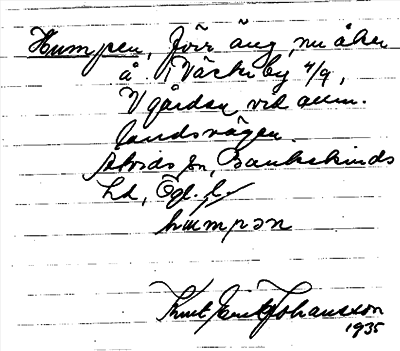 Humpen, förr äng, nu åker
å. i Västerby 4/9,
V gården vid allm.
landsvägen.
Åtvids sn, Bankekinds
hd, Ögl. l.
humpən
Knut Emil Johansson
1935